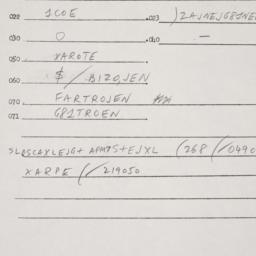 022 1COE .023 )2AJNEJG81NE
030 O .040 —
050 XAROTE
060 $/BIZOJEN
070 FARTROJEN
071 G81TROEN
SLOSCAXLEJG+ APM7S+EJXL (268 (/0490
XARPE (/219050